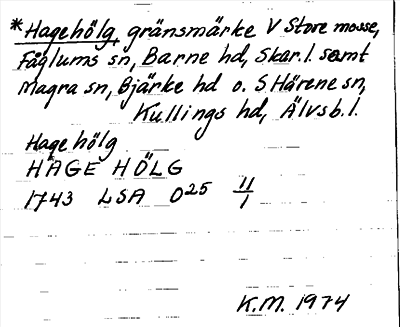 *Hagehölg, gränsmärke V Store mosse,
Fåglums sn, Barne hd, Skar.l. samt
Magra sn, Bjärke hd o. S. Härene sn,
Kullings hd, Älvsb.l.
Hage hölg
HAGE HÖLG
1743 LSA O25 11/1
K.M. 1974